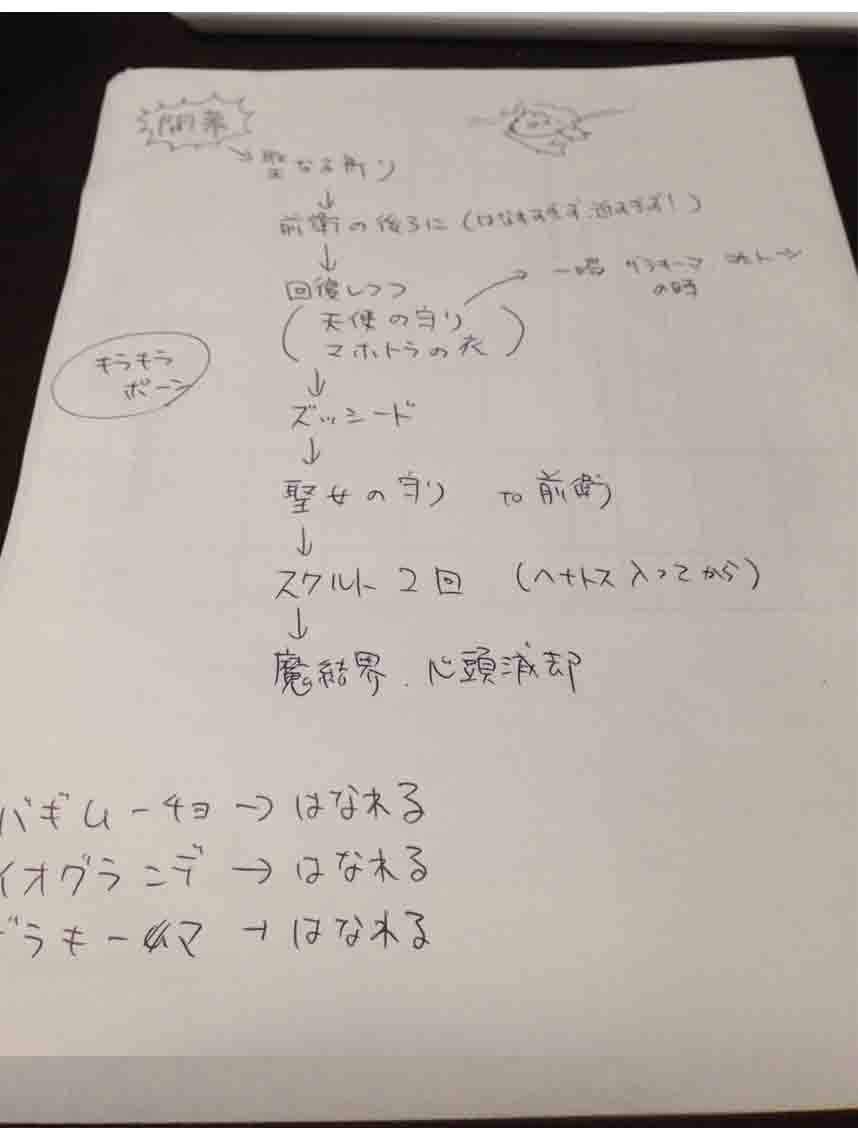 開幕
聖なる守り
↓
前衛の後ろに(はなれすぎず、近すぎず!)
↓
回復しつつ → 一喝 の時
(天使の守り
マホトラの衣)
キラキラ
ポーン
↓
ズッシード
↓
聖女の守り to 前衛
↓
スクルト2回 (ヘナトス入ってから)
↓
魔結界、心頭滅却
バギムーチョ→はなれる
イオグランデ→はなれる
ドラキーマ→はなれる